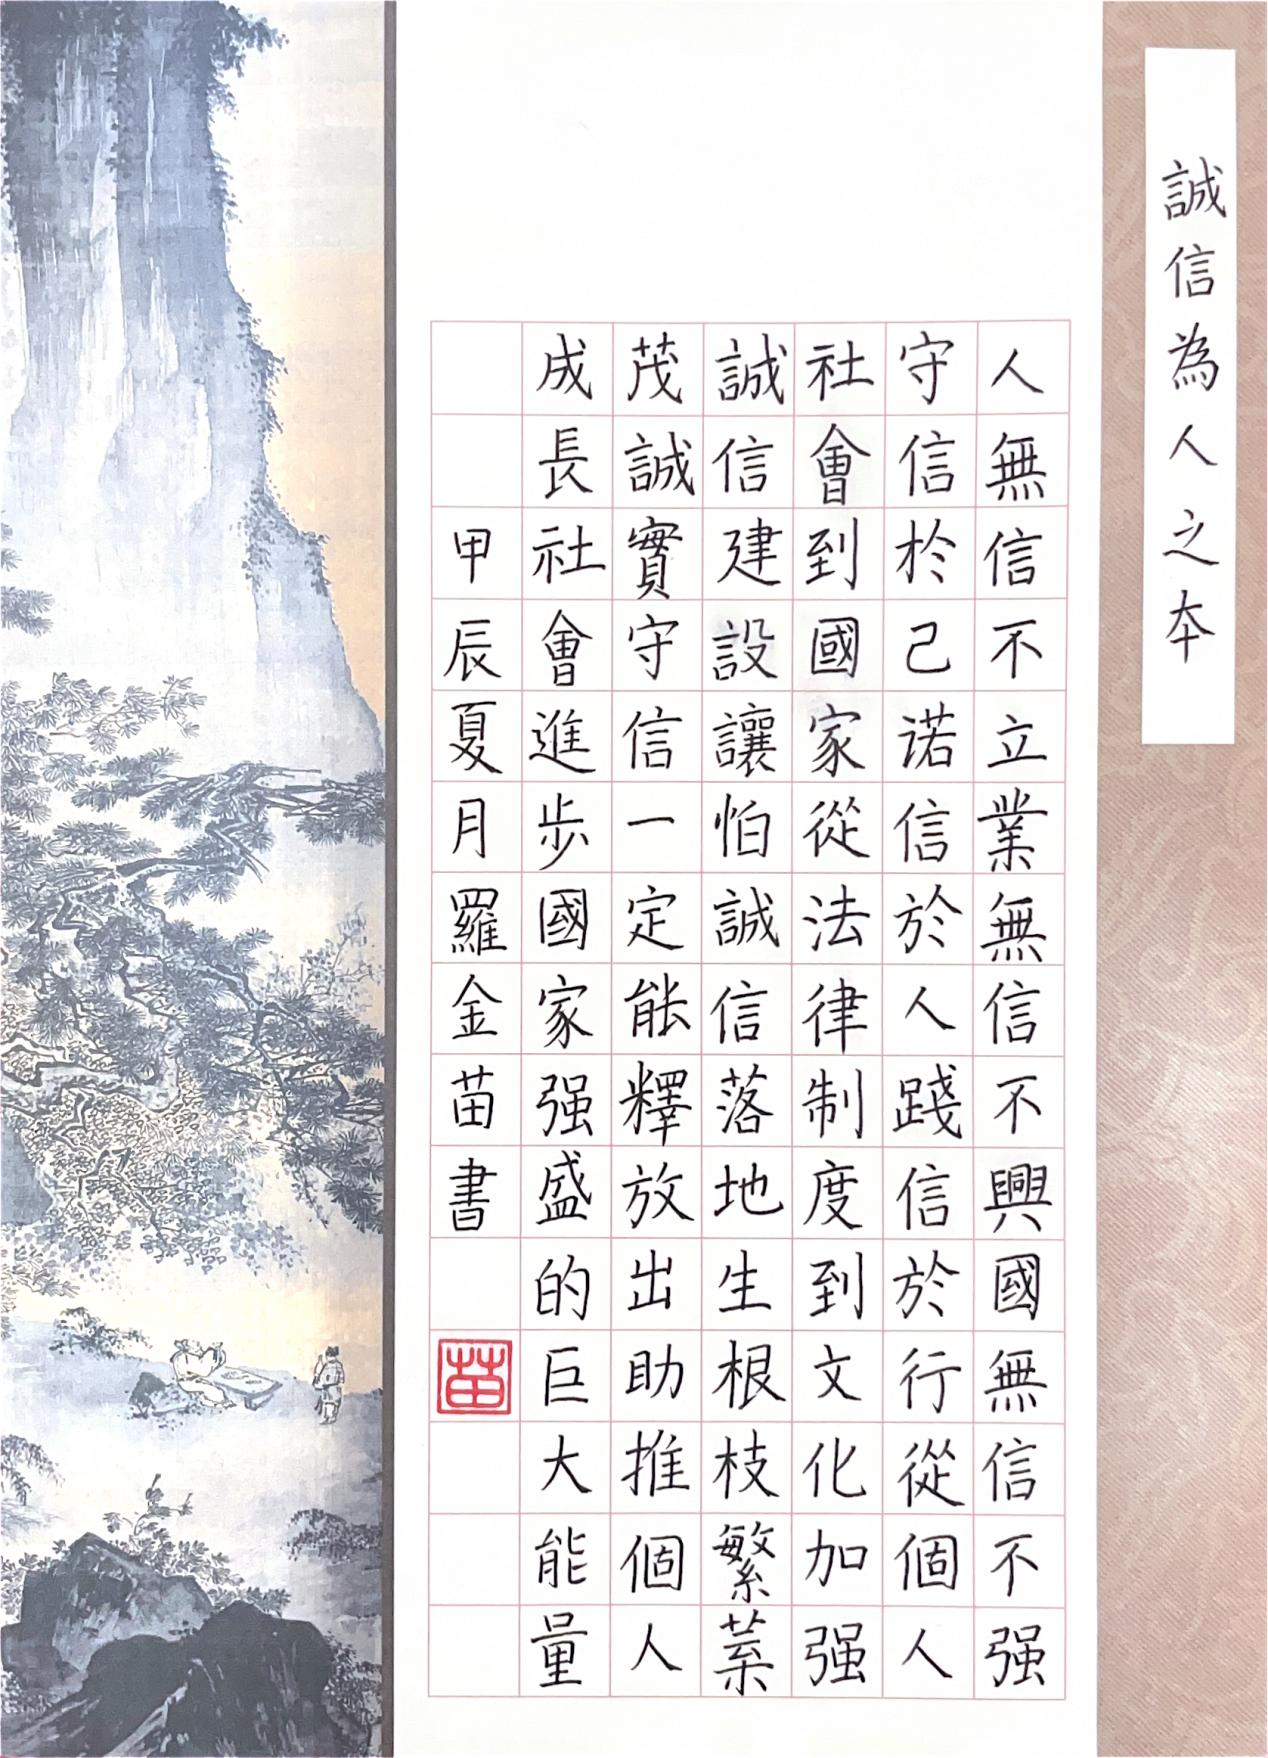 誠信為人之本
人無信不立業無信不興國無信不强
守信於己诺信於人踐信於行從個人
社會到國家從法律制度到文化加强
誠信建設讓怕誠信落地生根枝繁葉
茂誠實守信一定能釋放出助推個人
成長社會進步國家强盛的巨大能量
甲辰夏月羅金苗書
苗